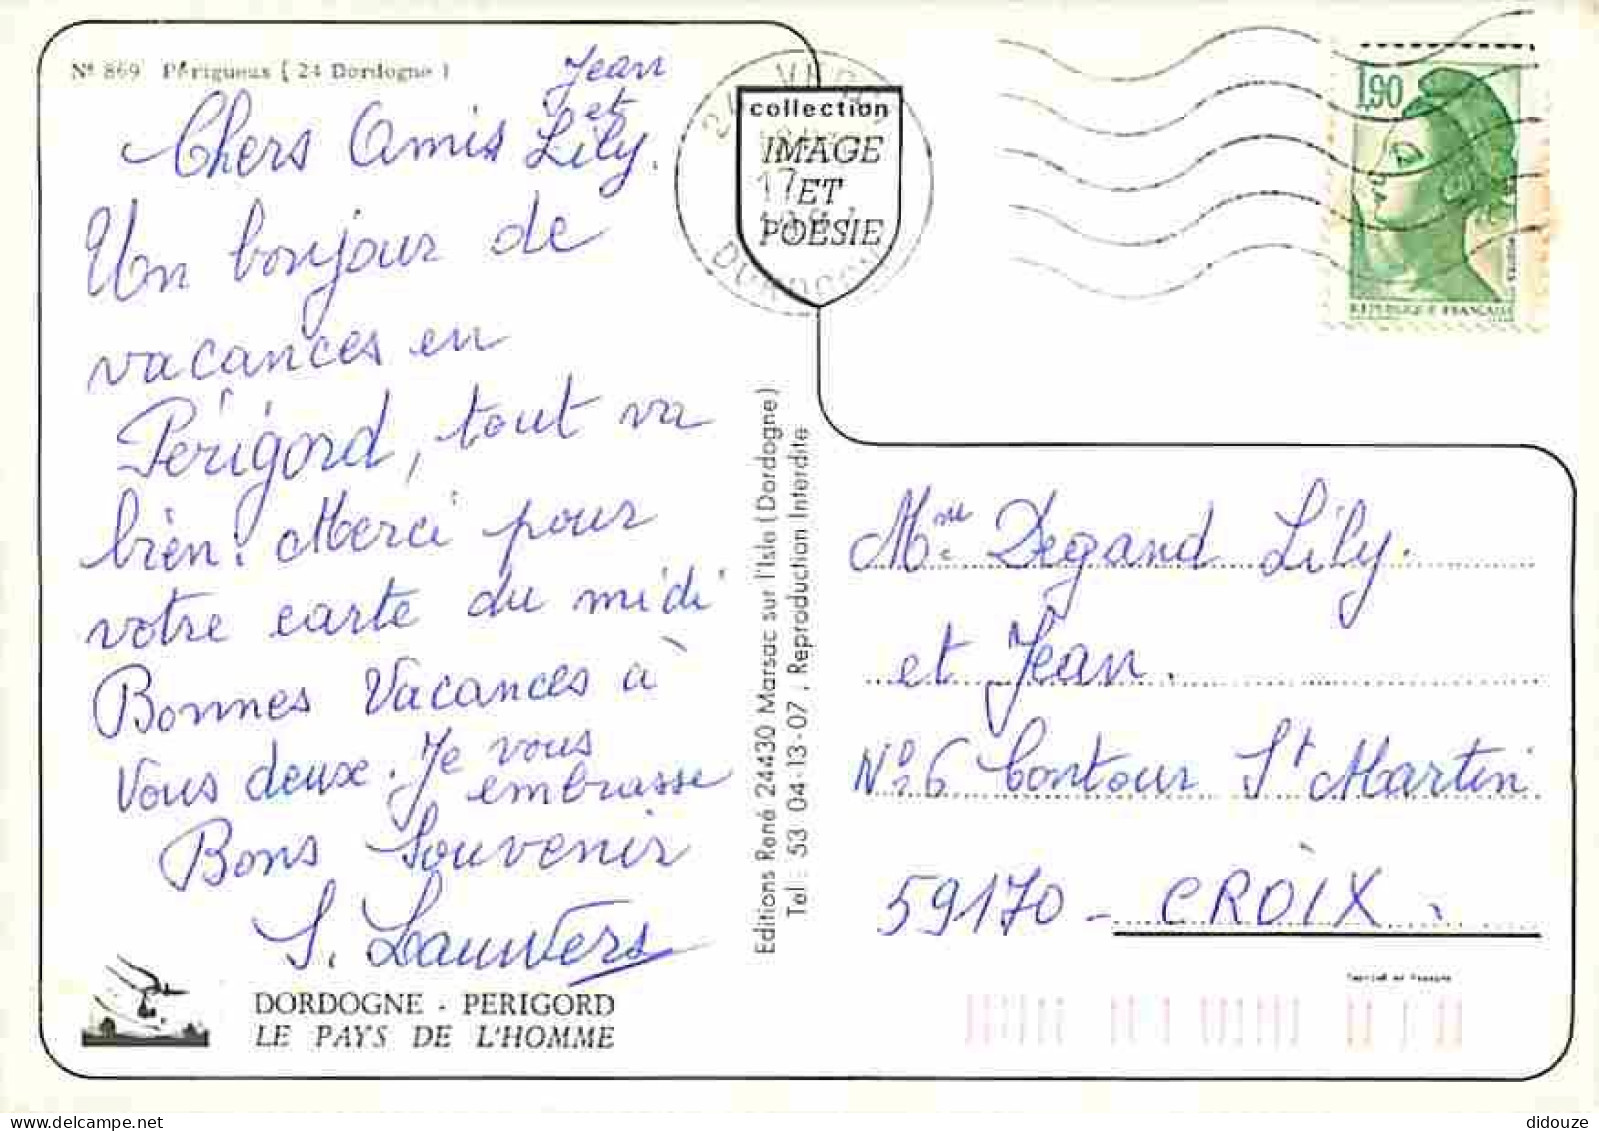 Nº 869 Périgueux ( 24 Dordogne )
Jean
et
Chers Amis Lily.
Un bonjour de
vacances en
Périgord, tout va
bien. Merci pour
votre carte du midi
Bonnes Vacances à
Vous deux. Je vous
embrasse
Bons Souvenir
S. Lauwers
DORDOGNE - PERIGORD
LE PAYS DE L'HOMME
collection
IMAGE
ET
POÉSIE
17
DORDOGNE
Editions René 24430 Marsac sur l'Isle (Dordogne)
Tél : 53 04-13-07 ; Reproduction Interdite
1,90
REPUBLIQUE FRANÇAISE
Mme Degand Lily.
et Jean.
Nº 6 Contour St Martin
59170 - CROIX.
didouze